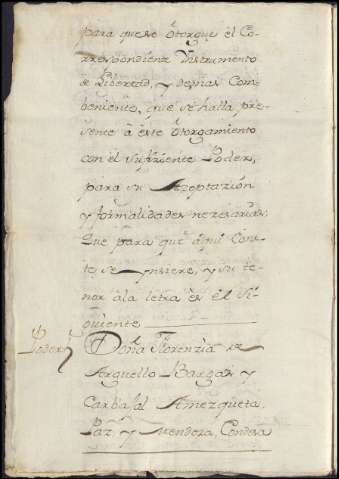 para que se otorgue el Co-
rrespondiente Ynstrumento
de Libertad, y demas Com-
beniente, que se halla pre-
sente à este otorgamiento
con el Sufiziente Poder,
para su Azeptazion
y formalidades nezesarias;
Que para que aqui Cons-
te se Ynsiere, y su te-
nor àla letra es el Si-
guiente
Poder
Doña Florenzia de
Arguello Bargas y
Carbajal Amezqueta,
Paz, y Mendoza, Condesa